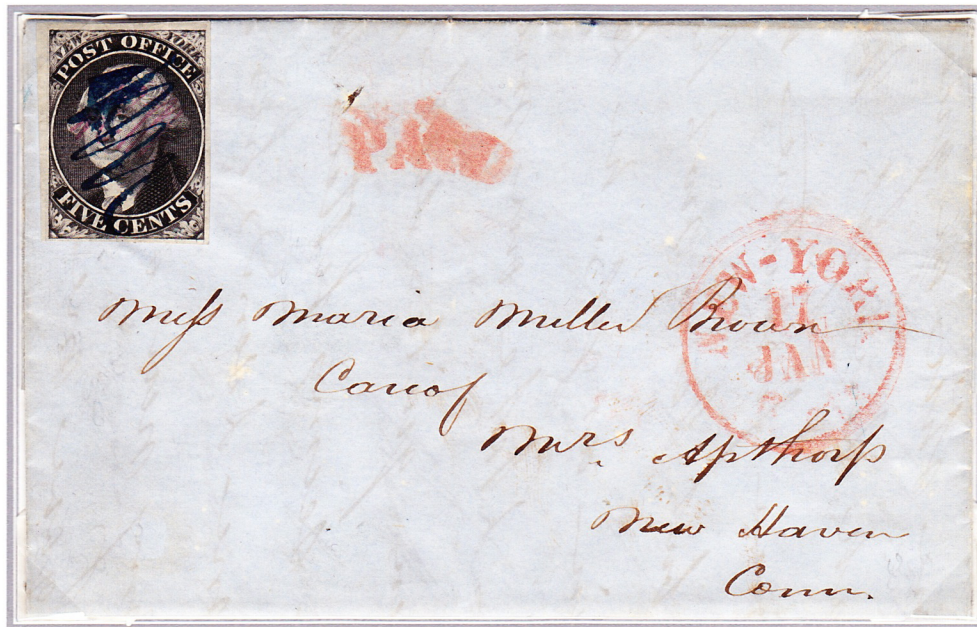 NEW YORK
POST OFFICE
FIVE CENTS
PAID
NEW-YORK
17
JAN
Miss Maria Miller Brown
Care of
Mrs. Apthorp
New Haven
Conn.